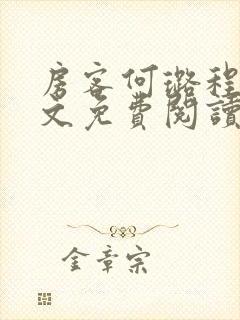 房客何璐程
文免費閱讀
金章宗